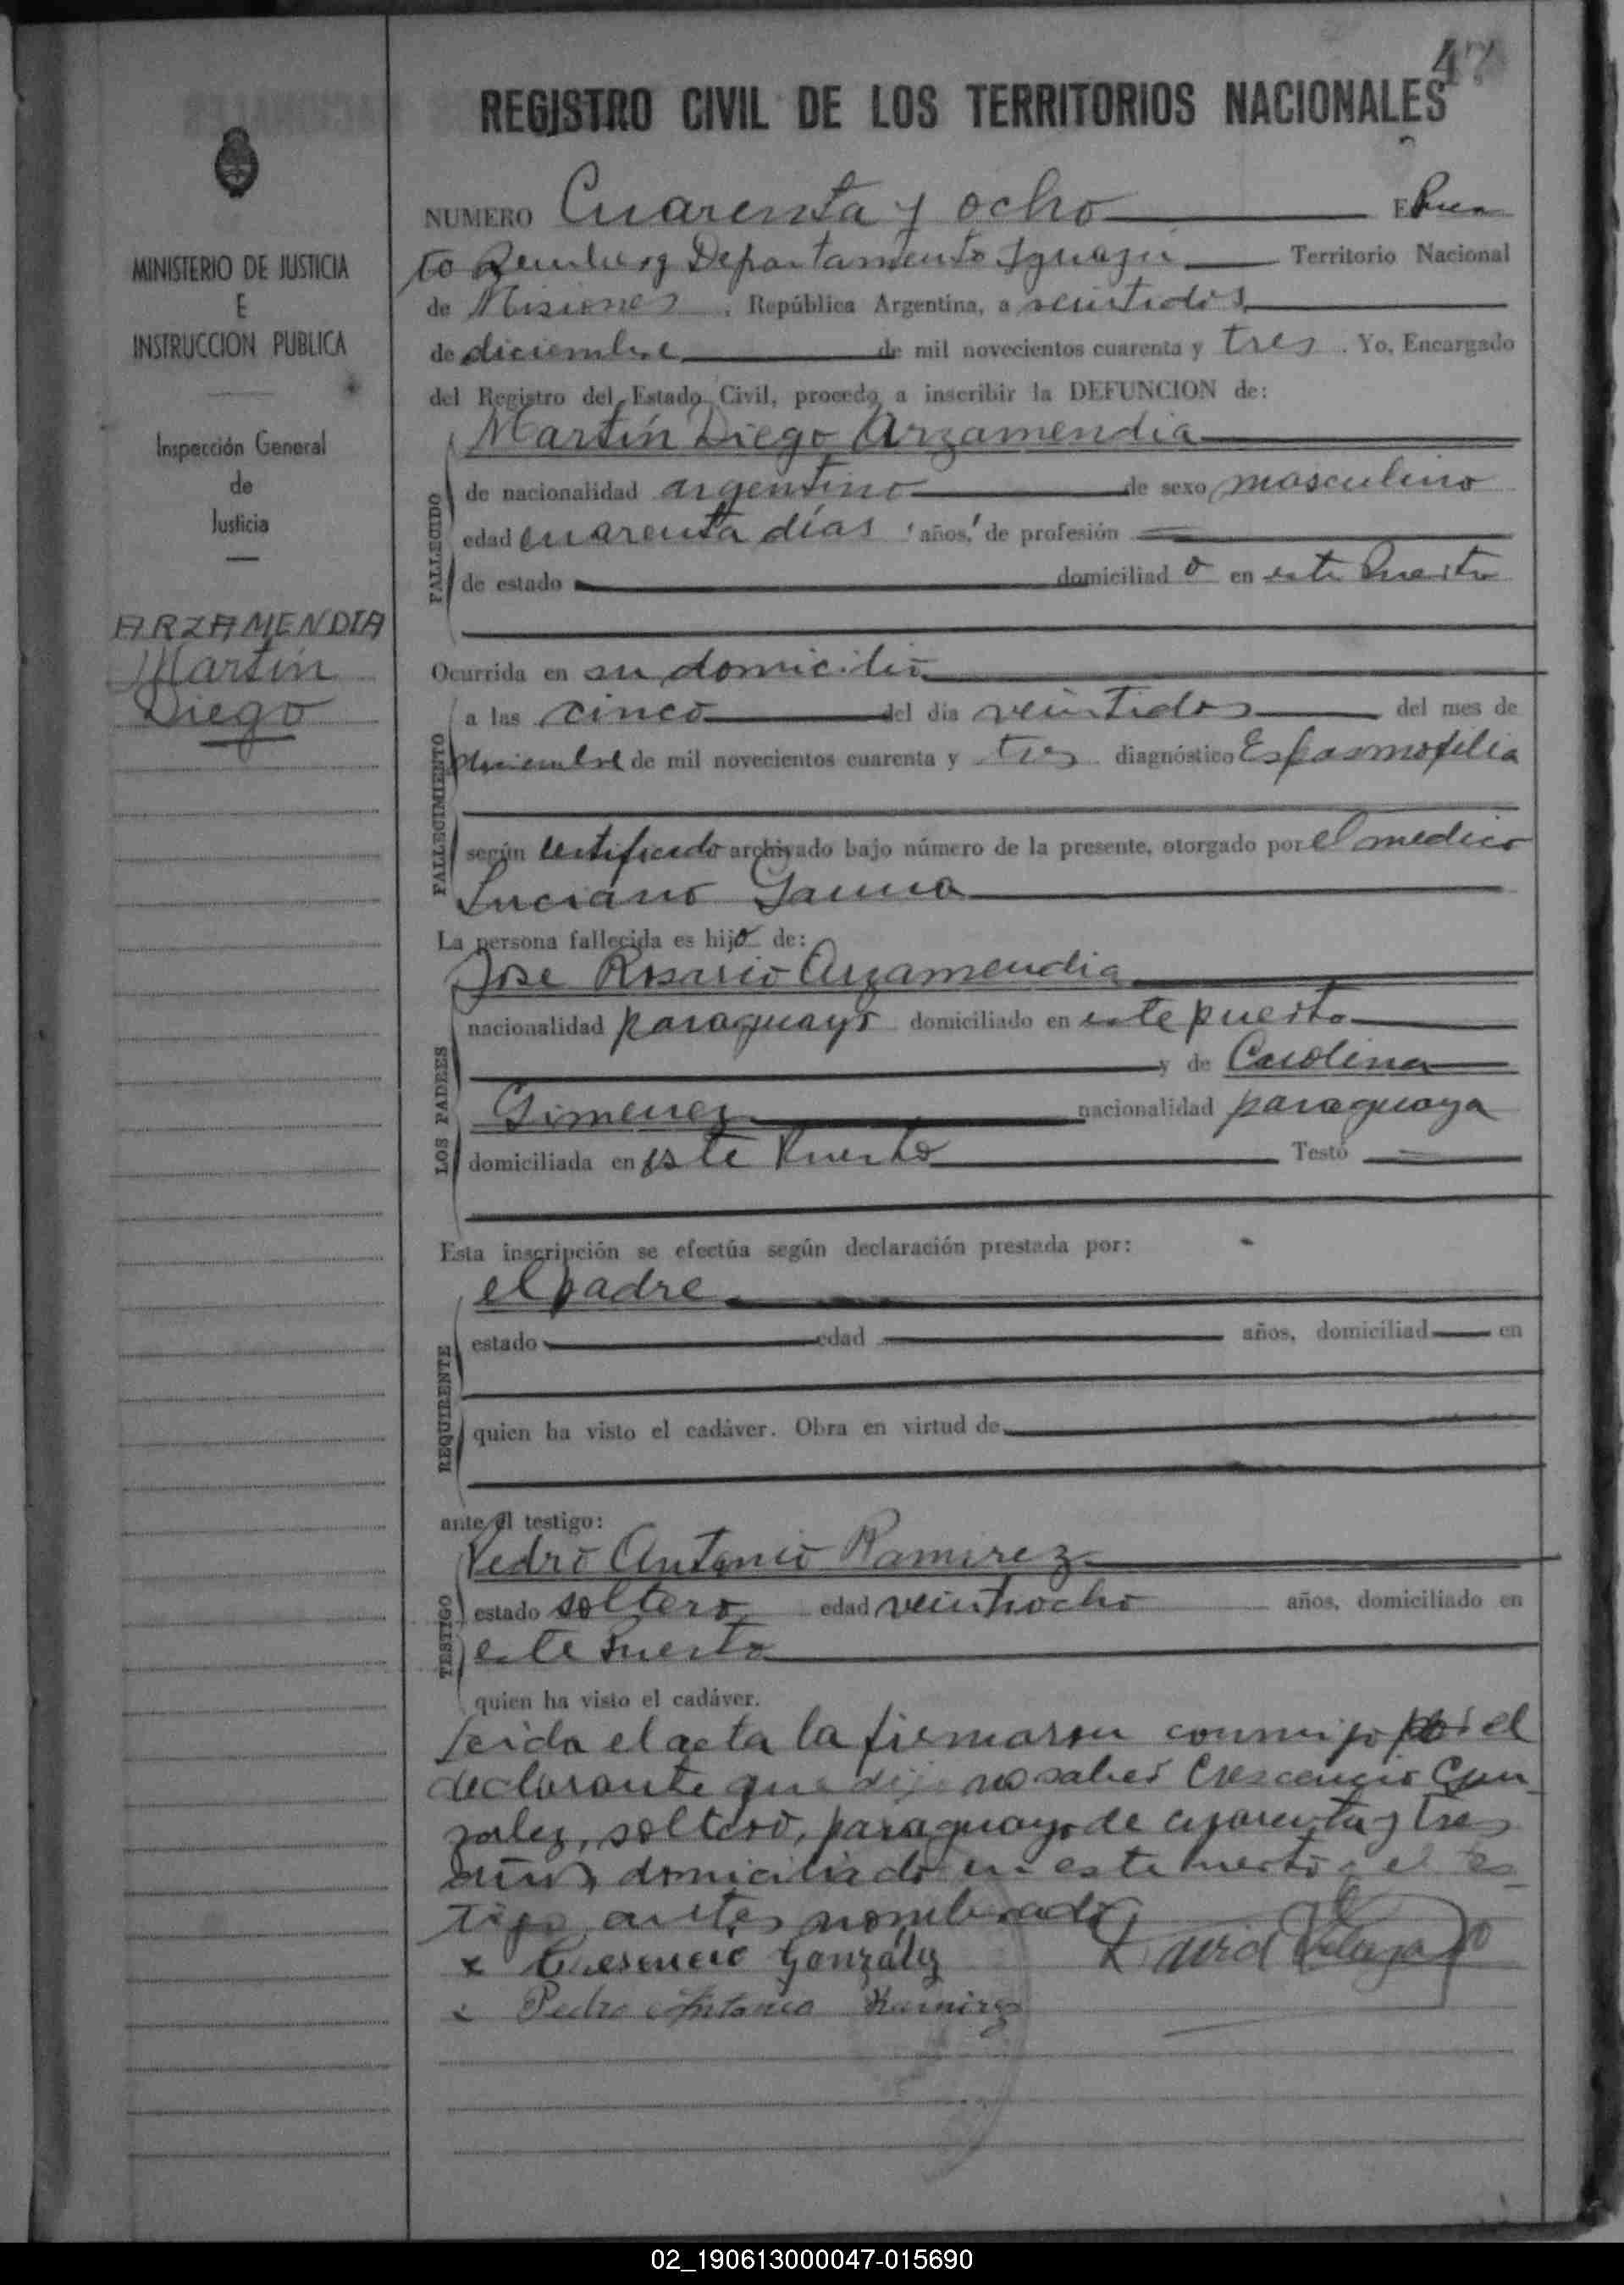 47
REGISTRO CIVIL DE LOS TERRITORIOS NACIONALES
MINISTERIO DE JUSTICIA
E
INSTRUCCION PUBLICA
Inspección General
de
Justicia
ARZAMENDIA
Martín
Diego
NUMERO Cuarenta y ocho En Puer
to Bemberg Departamento Iguazú Territorio Nacional
de Misiones, República Argentina, a veintidos
de diciembre de mil novecientos cuarenta y tres. Yo, Encargado
del Registro del Estado Civil, procedo a inscribir la DEFUNCION de:
Martín Diego Arzamendia
FALLECIDO
de nacionalidad argentino de sexo masculino
edad cuarenta días "años," de profesión
de estado domiciliado en este Puerto
Ocurrida en su domicilio
FALLECIMIENTO
a las cinco del día veintidos del mes de
diciembre de mil novecientos cuarenta y tres diagnóstico Espasmofilia
según certificado archivado bajo número de la presente, otorgado por el medico
Luciano
La persona fallecida es hijo de:
LOS PADRES
Jose Rosario Arzamendia
nacionalidad paraguayo domiciliado en este puerto
y de Carolina
Gimenez nacionalidad paraguaya
domiciliada en este Puerto Testó
Esta inscripción se efectúa según declaración prestada por:
REQUIRENTE
el padre
estado edad años, domiciliad en
quien ha visto el cadáver. Obra en virtud de
ante el testigo:
TESTIGO
Pedro Antonio Ramirez
estado soltero edad veintiocho años, domiciliado en
este Puerto
quien ha visto el cadáver.
Leida el acta la firmaron conmigo por el
declarante que dijo no saber Crescencio Gon
zalez, soltero, paraguayo de cuarenta y tres
años, domiciliado en este Puerto y el tes
tigo antes nombrado,
x Cresencio González
x Pedro Antonio Ramirez
David
02_190613000047-015690